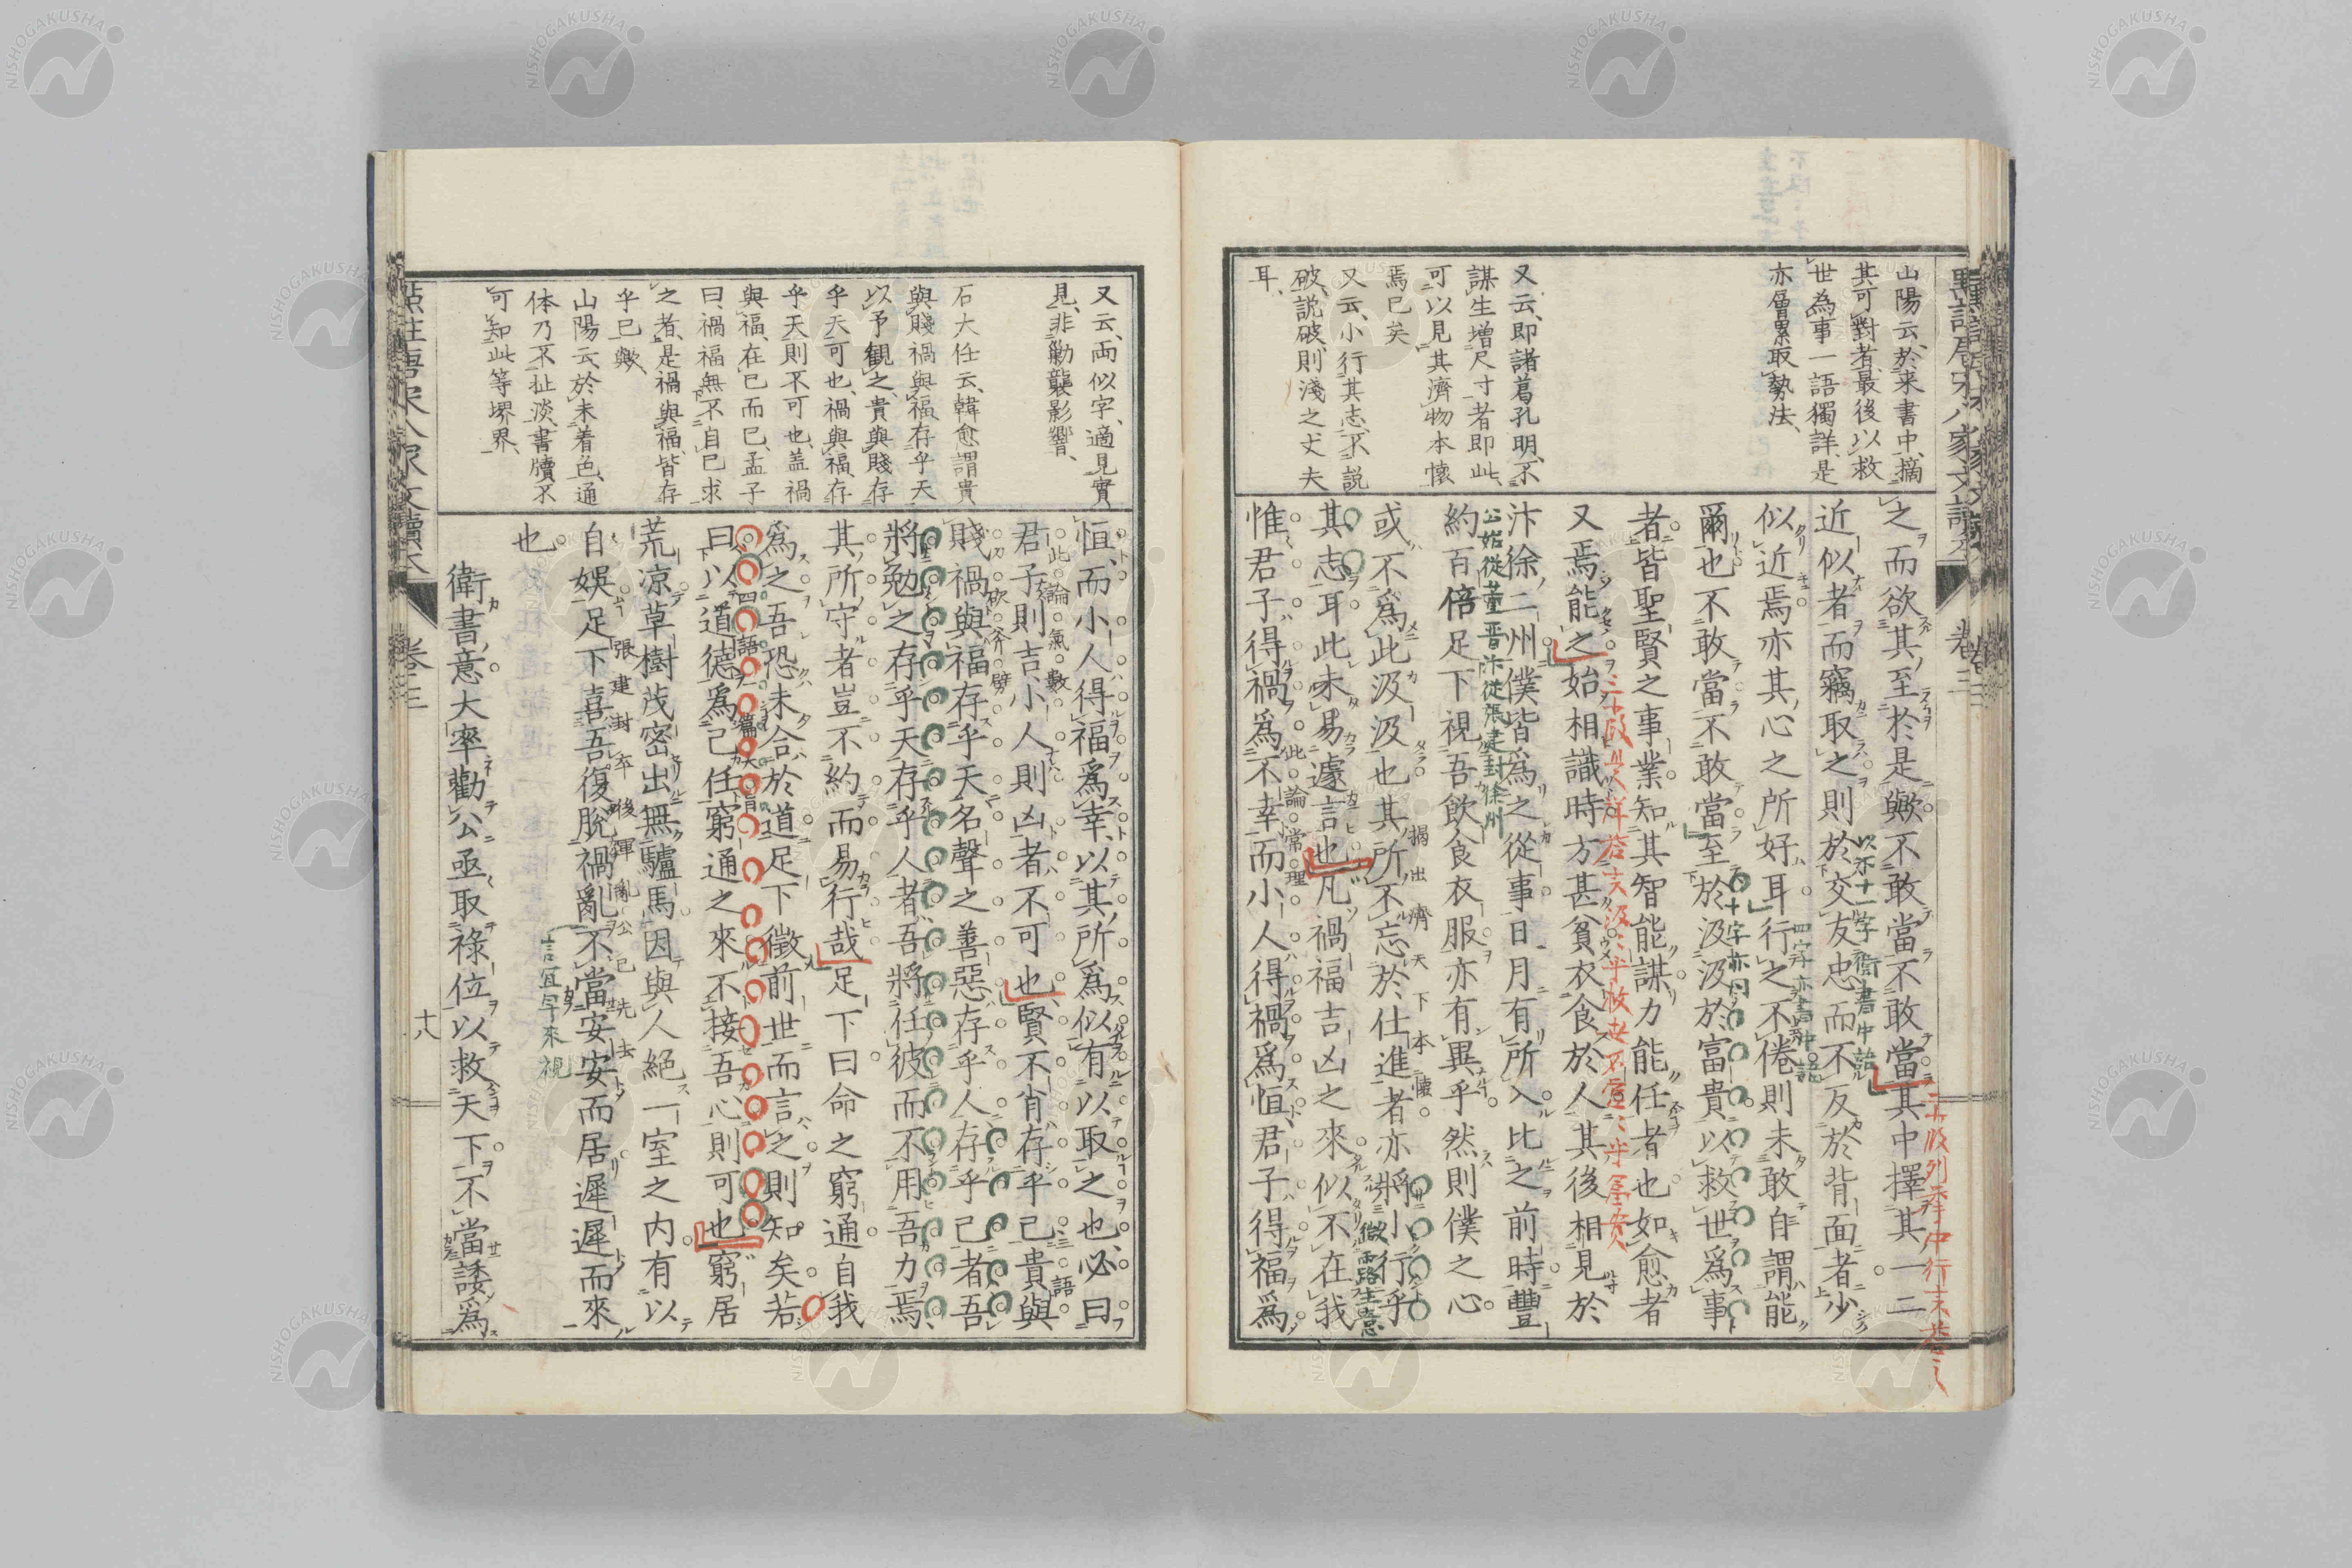 山陽云、於来書中、摘
其可對者、最後以救
世為事一語獨詳、是
亦層累取勢法、
又云、即諸葛孔明、不
謀生增尺寸者即此、
可以見其濟物本懷
焉已矣、
又云、小行其志、不說
破、說破、則淺之丈夫
耳、
之而欲其至於是歟不敢當不敢當其中擇其一二
近似者而竊取之則於交友忠而不反於背面者少
似近焉亦其心之所好耳行之不倦則未敢自謂能
爾也不敢當不敢當至於汲汲於富貴以救世爲事
者皆聖賢之事業知其智能謀力能任者也如愈者
又焉能之始相識時方甚貧衣食於人其後相見於
汴徐二州僕皆爲之從事日月有所入比之前時豐
約百倍足下視吾飲食衣服亦有異乎然則僕之心
或不爲此汲汲也其所不忘於仕進者亦將小行乎
其志耳此未易遽言也凡禍福吉凶之來似不在我
惟君子得禍爲不幸而小人得禍爲恒君子得福爲
以下十一字衛書中語
四字亦書中語
十字亦同
公始從董晋汴從張建封徐州
揭出濟天下本懷
微露生意
此論常理
卷三
又云、兩似字、適見實
見、非勦襲影響、
石大任云、韓愈謂貴
與賤禍與福存乎天
以予観之、貴與賤存
乎天可也、禍與福、存
乎天則不可也、盖禍
與福、在已而已、孟子
曰、禍福無不自已求
之者、是禍與福、皆存
乎已歟、
山陽云、於未着色、通
体乃不扯淡、書牘不
可知此等堺界、
恒而小人得福爲幸以其所爲似有以取之也必曰
君子則吉小人則凶者不可也賢不肖存乎已貴與
賤禍與福存乎天名聲之善惡存乎人存乎已者吾
將勉之存乎天存乎人者吾將任彼而不用吾力焉
其所守者豈不約而易行哉足下曰命之窮通自我
爲之吾恐未合於道足下徵前世而言之則知矣若
曰以道德爲己任窮通之來不接吾心則可也窮居
荒凉草樹茂密出無驢馬因與人絕一室之内有以
自娯足下喜吾復脫禍亂不當安安而居遲遲而來
也
衛書意大率勸公亟取祿位以救天下不當諉爲
此論氣數
三語
砍斧劈
四語一篇大旨
張建封卒後軍亂公已先去
言宜早來視
卷三
十八